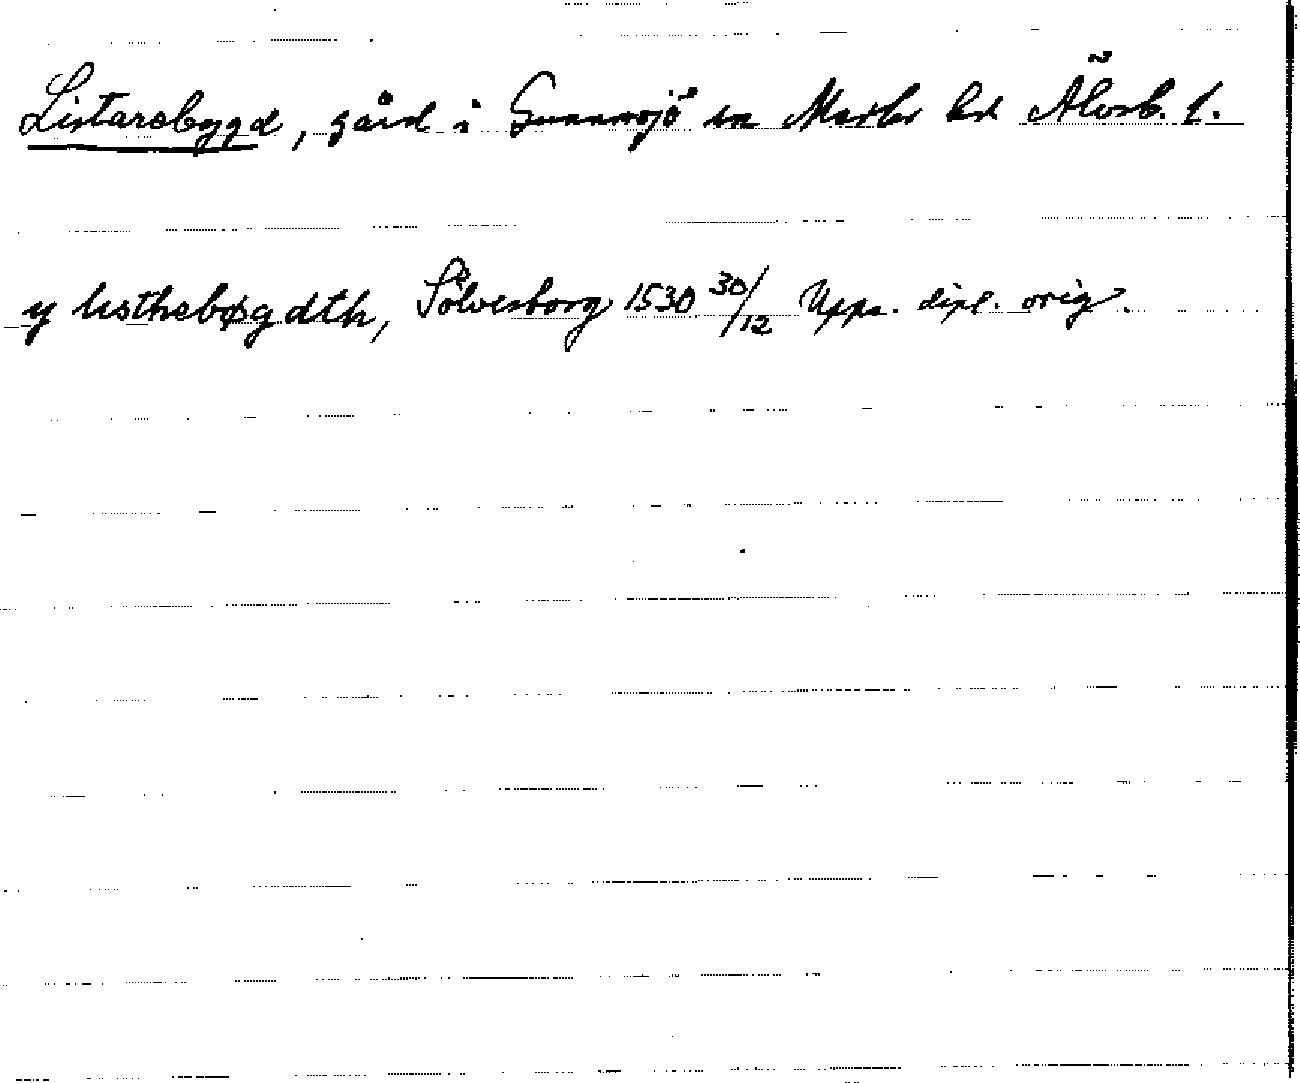 Listarebygd, gård i Gunnarsjö sn Marks hd Älvsb. l.
y listhebøgdth, Sölvesborg 1530 30/12 Upps. dipl. orig.